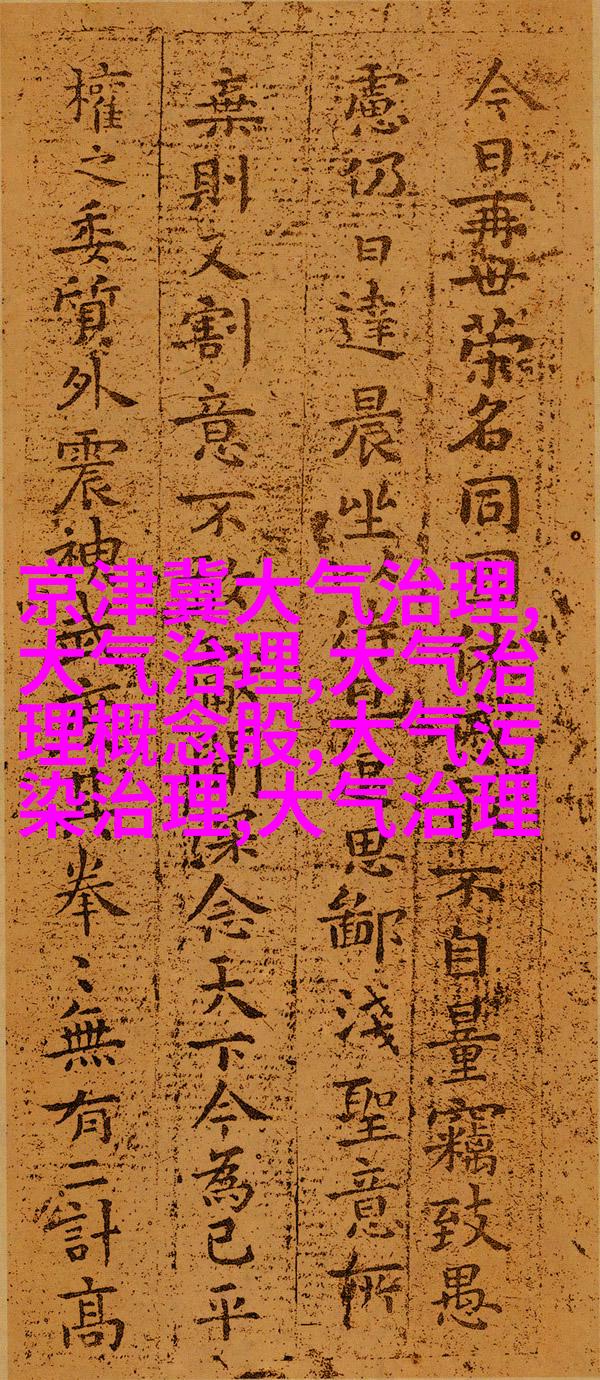 今日再世榮名同國休不自量竊致愚
慮仍日達晨坐以待旦退思鄙淺聖意所
棄則又割意不敢獻聞深念天下今為已平
權之委質外震神武度其拳〻無有二計高
京津冀大气治理,
大气治理,大气治
理概念股,大气污
染治理,大气治理